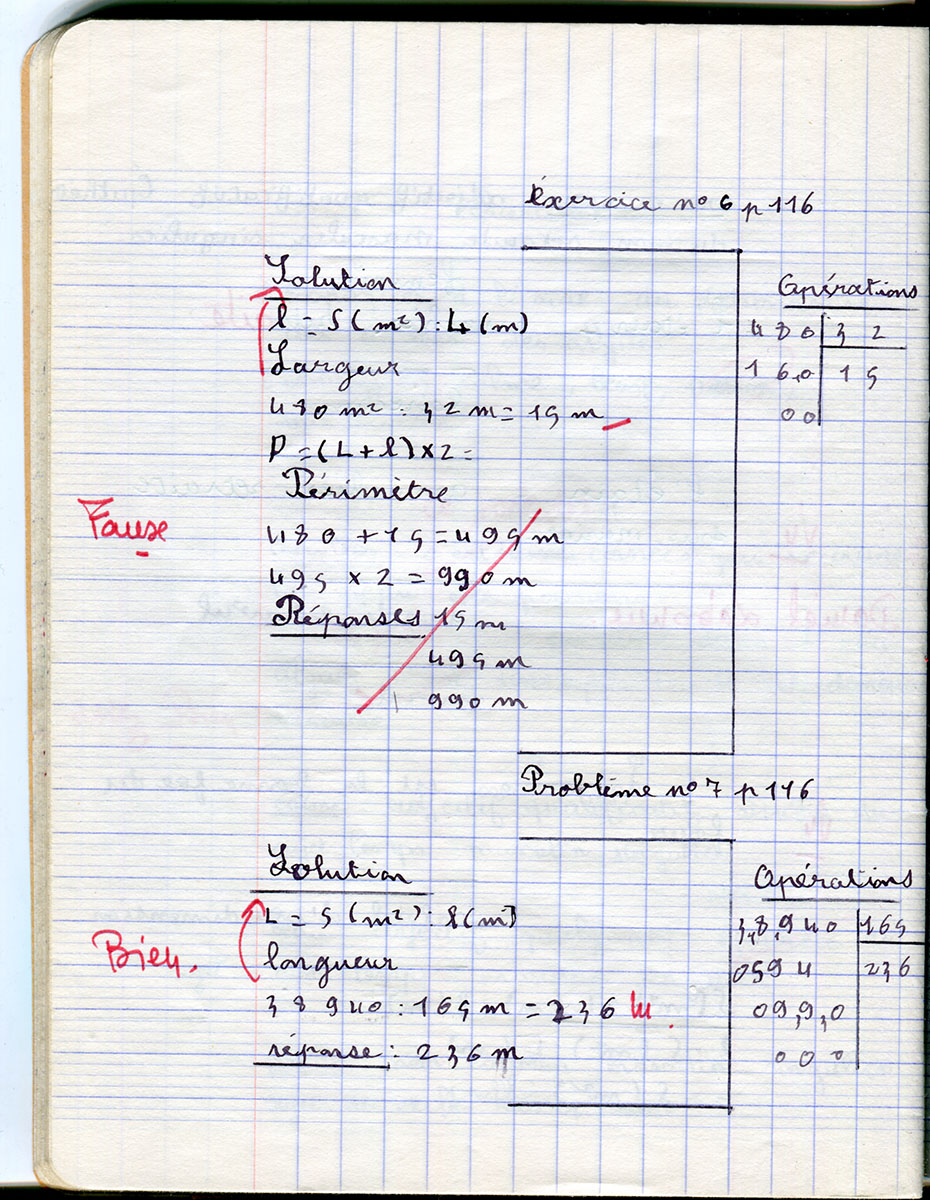 Éxercice n° 6 p 116
Solution
l = S (m²) : L (m)
Largeur
480 m² : 32 m = 15 m
P = (L + l) x 2 =
Périmètre
480 + 15 = 495 m
495 x 2 = 990 m
Réponses 15 m
495 m
990 m
Fause
Opérations
480 32
16,0 15
00
Problème n° 7 p 116
Solution
L = S (m²) : l (m)
longueur
38 940 : 165 m = 236 m.
réponse : 236 m
Bien.
Opérations
38,940 165
0594 236
099,0
000